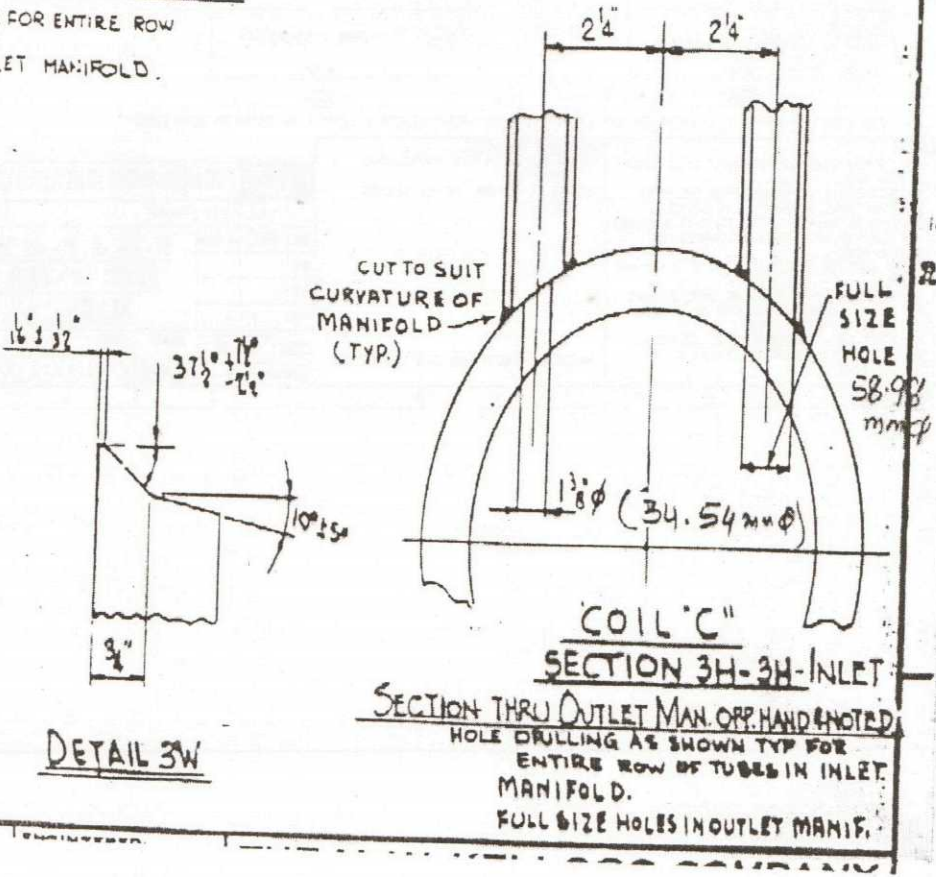 FOR ENTIRE ROW
LET MANIFOLD.
2¼"
2¼"
CUT TO SUIT
CURVATURE OF
MANIFOLD
(TYP.)
FULL
SIZE
HOLE
58.98
mmφ
1/16" ± 1/32"
37½°
10° ±5°
1⅜"φ (34.54 mmφ)
¾"
DETAIL 3W
COIL "C"
SECTION 3H-3H-INLET
SECTION THRU OUTLET MAN. OPP. HAND & NOTED
HOLE DRILLING AS SHOWN TYP FOR
ENTIRE ROW OF TUBES IN INLET
MANIFOLD.
FULL SIZE HOLES IN OUTLET MANIF.